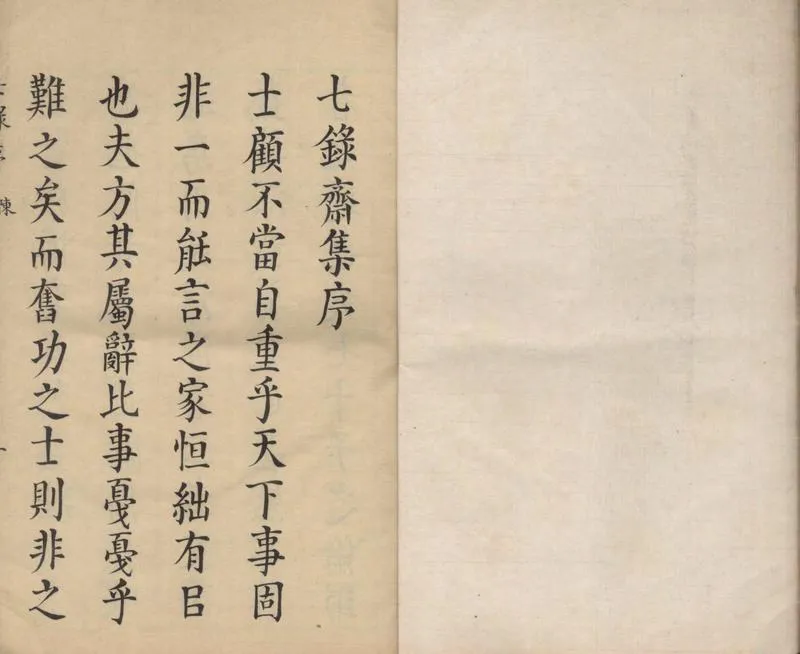 七錄齋集序
士顧不當自重乎天下事固
非一而能言之家恒絀有㠯
也夫方其屬辭比事戞戞乎
難之矣而奮功之士則非之
陳